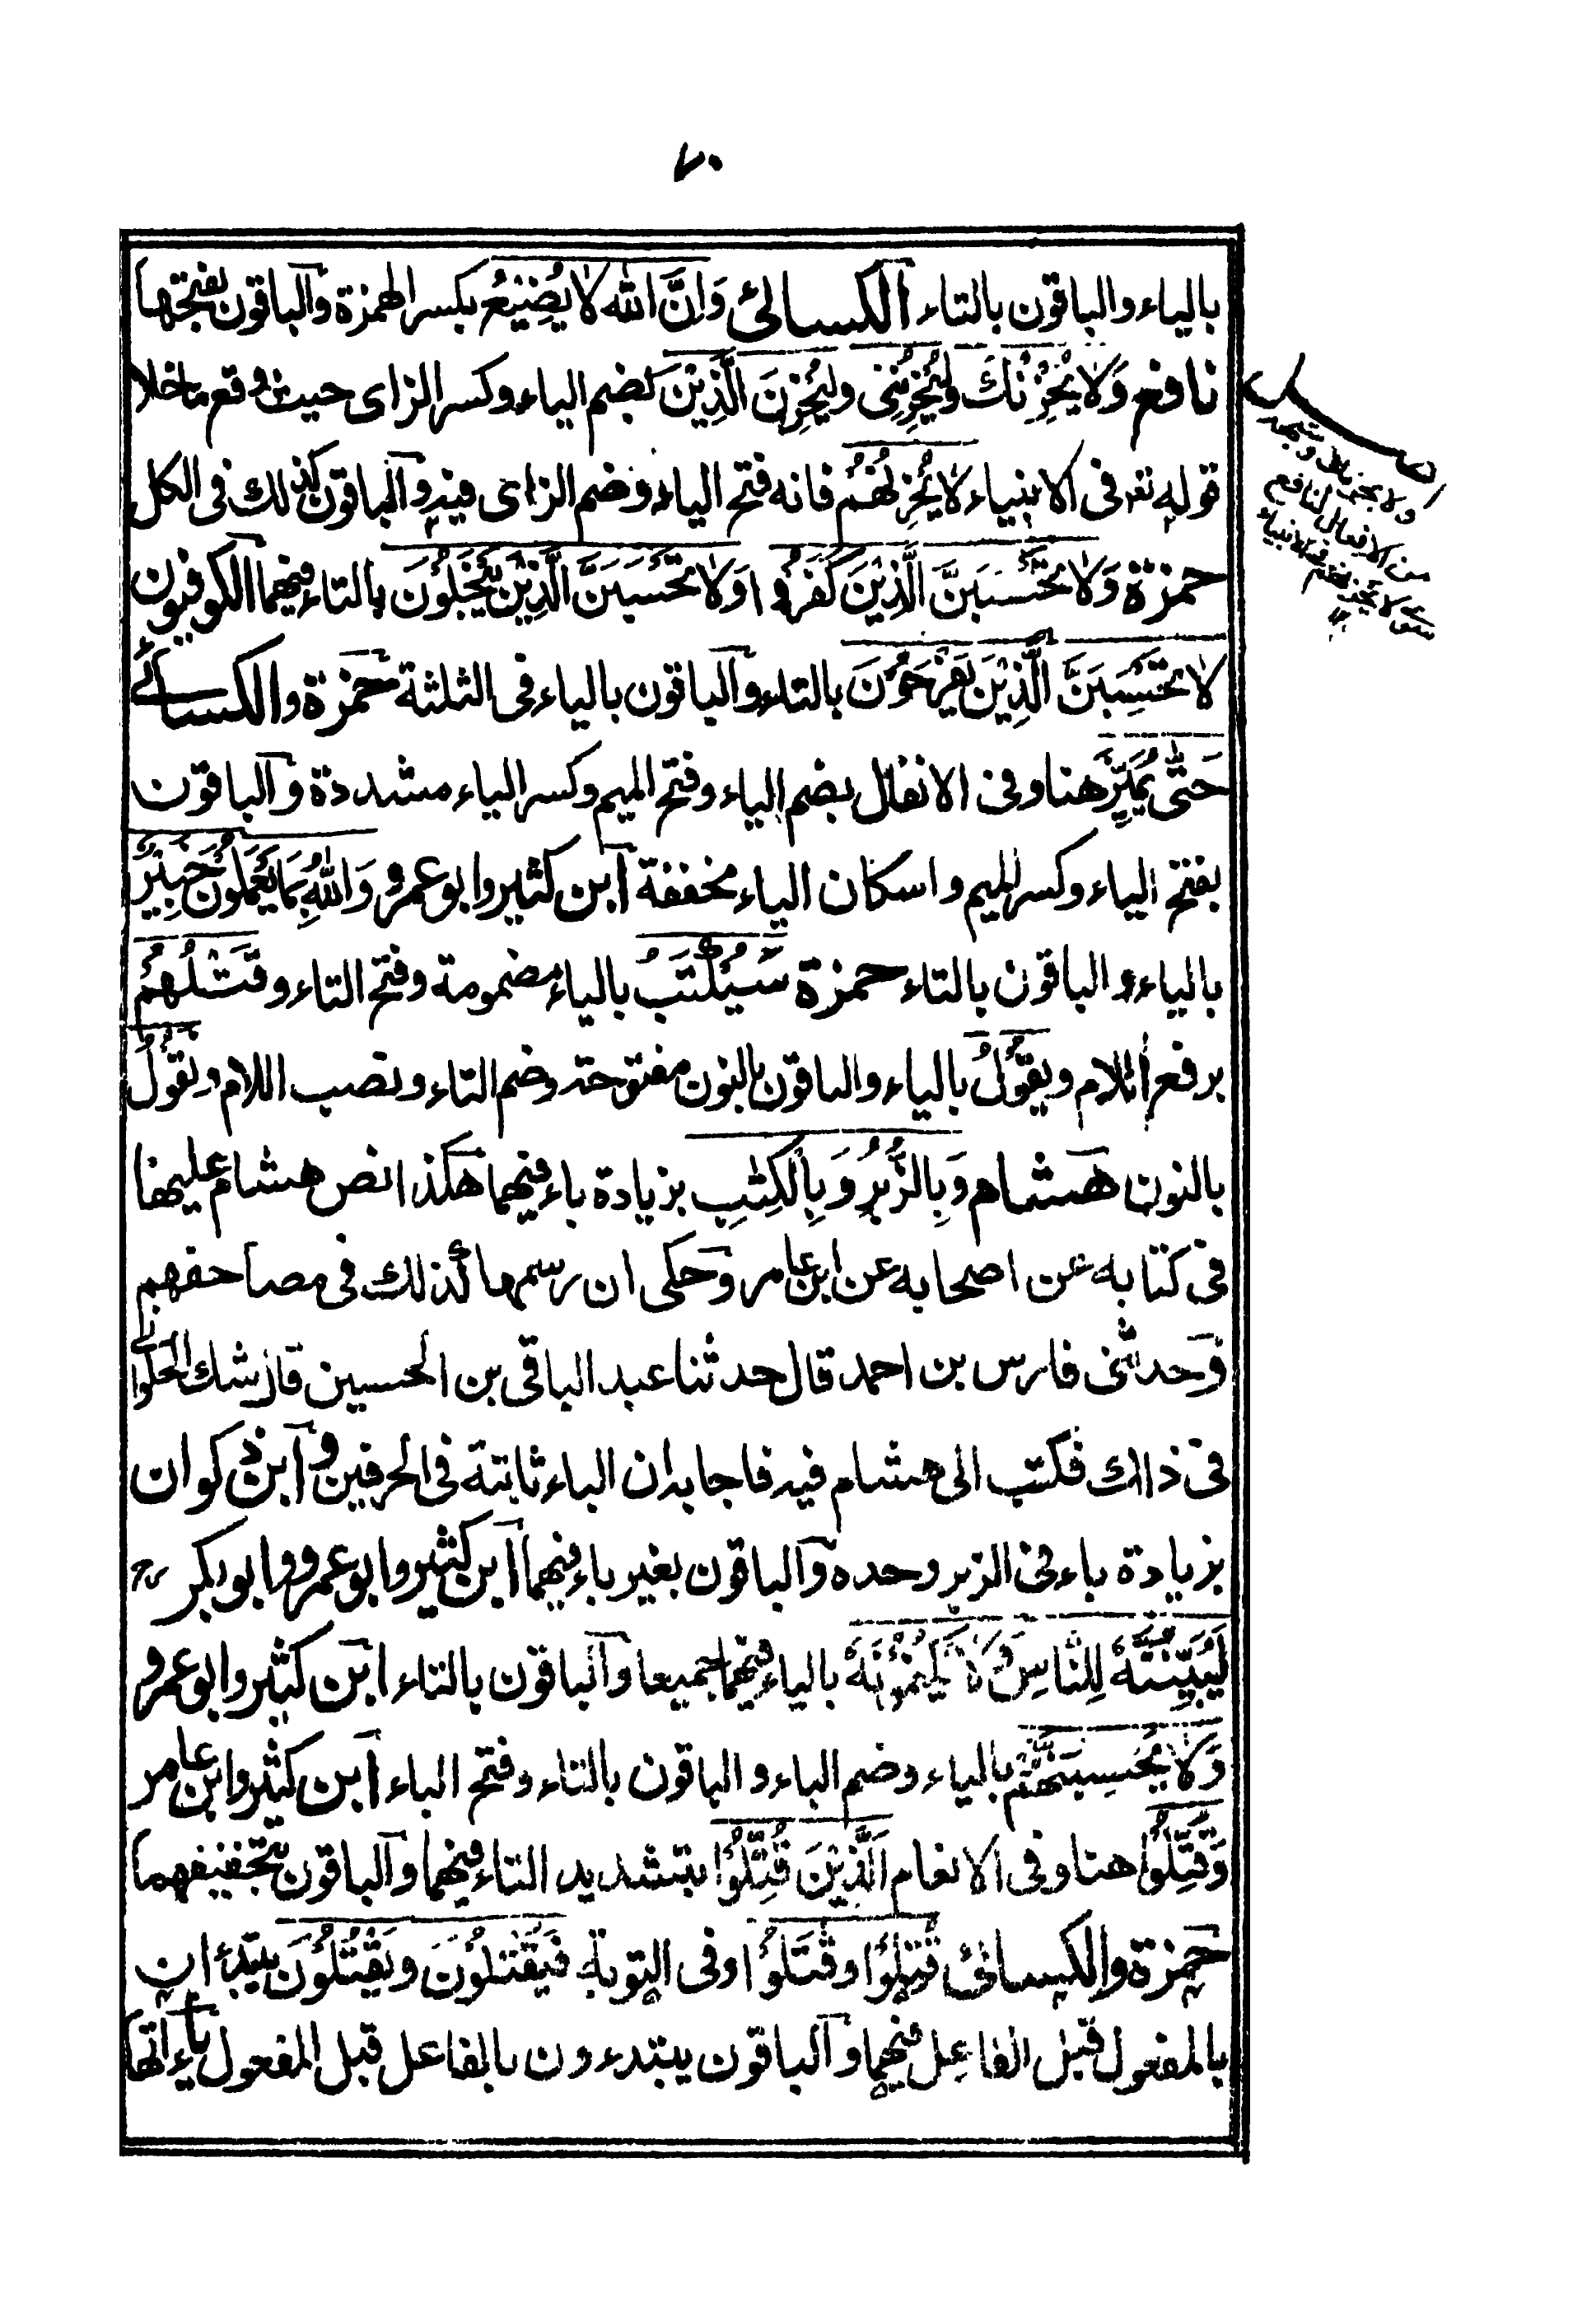 ٧٠
بالياء والباقون بالتاء الكسائى وَاِنَّ الله لا يُضِيْعُ بكسر الهمزة والباقون بفتحها
نافع وَلا يُحْزِنْكَ وليُحْزِنُنِى وليُحْزِنَ الَّذِيْنَ بضم الياء وكسر الزاى حيث وقع ما خلا
قوله تعـ فى الانبياء لا يُحْزِنُهُمْ فانه فتح الياء وضم الزاى فيه والباقون كذلك فى الكل
حمزة وَلا تَحْسَبَنَّ الَّذِيْنَ كَفَرُوا وَلا تَحْسَبَنَّ الَّذِيْنَ يَبْخَلُوْنَ بالتاء فيهما الكوفيون
لا تَحْسِبَنَّ الَّذِيْنَ يَفْرَحُوْنَ بالتاء والباقون بالياء فى الثلثة حمزة والكسائے
حَتّٰى يُمَيِّزَ هنا وفى الانفال بضم الياء وفتح الميم وكسر الياء مشددة والباقون
بفتح الياء وكسر الميم واسكان الياء مخففة ابن كثير وابو عمرو وَاللّٰهُ بِمَا يَعْمَلُوْنَ خَبِيْرٌ
بالياء والباقون بالتاء حمزة سَيُكْتَبُ بالياء مضمومة وفتح التاء وقَتْلُهُمْ
برفع اللام ويقُوْلُ بالياء والباقون بالنون مفتوحة وضم التاء ونصب اللام ونقُوْلُ
بالنون هشام وَبِالزُّبُرِ وَبِالْكِتٰبِ بزيادة باء فيهما هكذا نص هشام عليهما
فى كتابه عن اصحابه عن ابن عامر وحكى ان رسمها كذلك فى مصاحفهم
وحدثنى فارس بن احمد قال حدثنا عبد الباقى بن الحسين قال شك الحلوانے
فى ذالك فكتب الى هشام فيه فاجابه ان الباء ثابتة فى الحرفين وابن ذكوان
بزيادة باء فى الزبر وحده والباقون بغير باء فيهما ابن كثير وابو عمرو وابو بكر
لَيُبَيِّنُنَّهٗ لِلنَّاسِ وَلا يَكْتُمُوْنَهٗ بالياء فيهما جميعا والباقون بالتاء ابن كثير وابو عمرو
وَلا يَحْسِبُنَّهُمْ بالياء وضم الباء والباقون بالتاء وفتح الباء ابن كثير وابن عامر
وَقُتِّلُوْا هنا وفى الانعام الَّذِيْنَ قُتِّلُوْا بتشديد التاء فيهما والباقون بتخفيفهما
حمزة والكسائى قُتِلُوْا وقَتَلُوْا وفى التوبة فَيُقْتَلُوْنَ ويَقْتُلُوْنَ يبتدءان
بالمفعول قبل الفاعل فيهما والباقون يبتدءون بالفاعل قبل المفعول ياءاتها
من الافعال لنافع